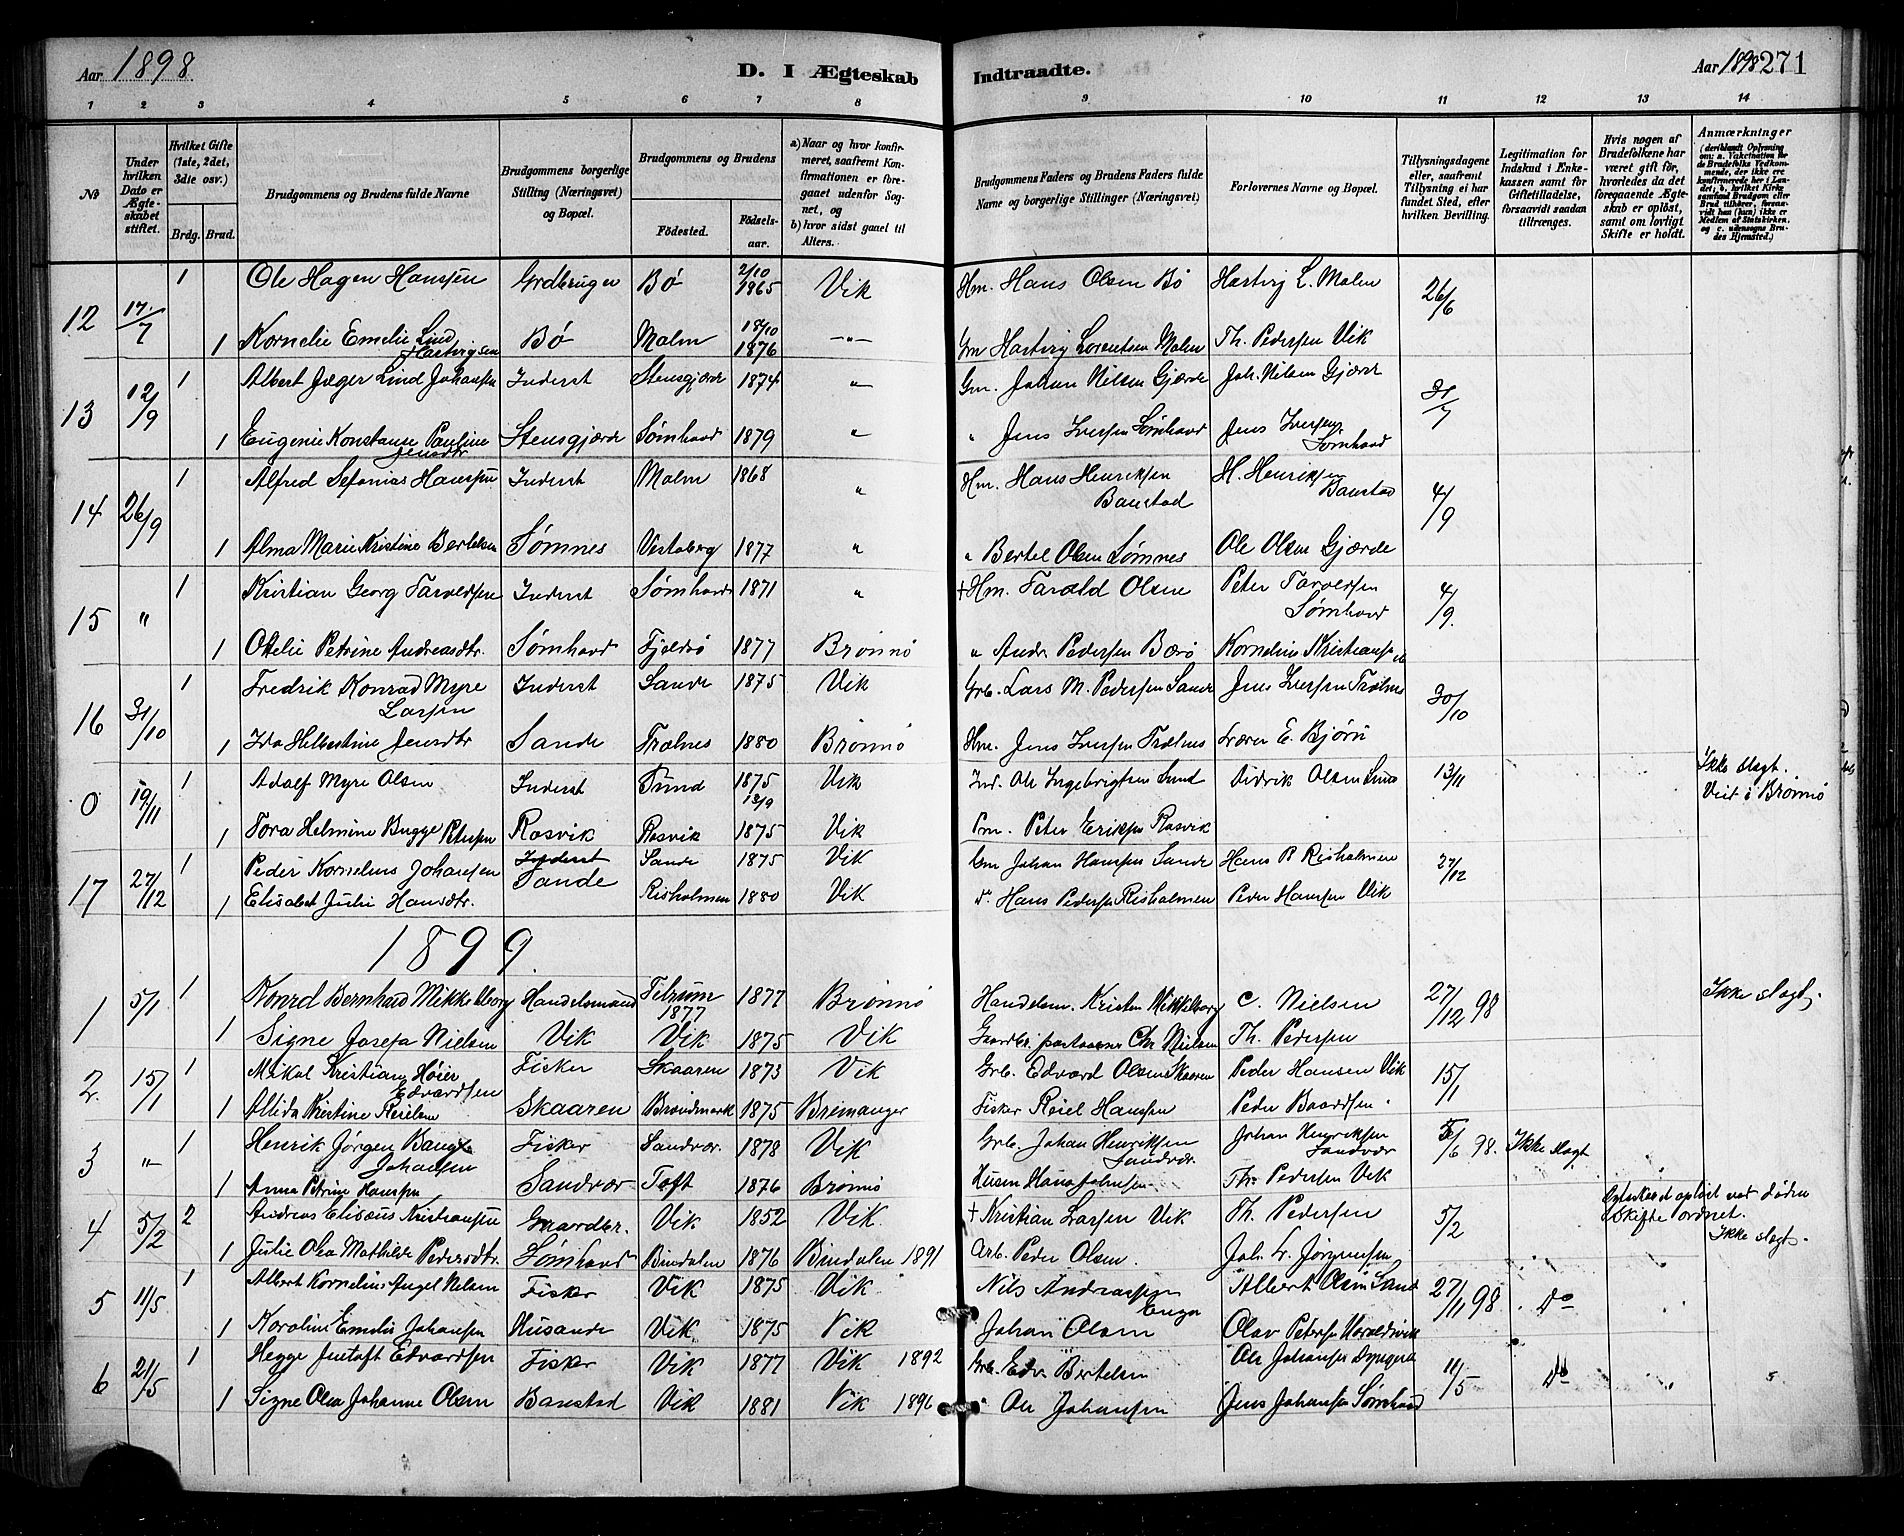 Aar 1898.
D. I Ægteskab Indtraadte.
Aar 1898 271
1 2 3 4 5 6 7 8 9 10 11 12 13 14
№
Under hvilken Dato er Ægteskabet stiftet.
Hvilket Gifte (1ste, 2det, 3die osv.)
Brdg. Brud.
Brudgommens og Brudens fulde Navne
Brudgommens borgerlige Stilling (Næringsvei) og Bopæl.
Brudgommens og Brudens
Födested. Födselsaar.
a) Naar og hvor konfirmeret, saafremt Konfirmationen er foregaaet udenfor Sognet, og b) hvor sidst gaaet til Alters.
Brudgommens Faders og Brudens Faders fulde Navne og borgerlige Stillinger (Næringsvei)
Forlovernes Navne og Bopæl.
Tillysningsdagene eller, saafremt Tillysning ei har fundet Sted, efter hvilken Bevilling.
Legitimation for Indskud i Enkekassen samt for Giftetilladelse, forsaavidt saadan tiltrænges.
Hvis nogen af Brudefolkene har været gift før, hvorledes da det foregaaende Ægteskab er oplöst, samt om lovligt Skifte er holdt.
Anmærkninger (deriblandt Oplysning om: a. Vakcination for de Brudefolks Vedkommende, der ikke ere konfirmerede her i Landet; b. hvilket Kirkesamfund Brudgom eller Brud tilhører, forsaavidt han (hun) ikke er Medlem af Statskirken, og c. udensogns Brudes Hjemsted.)
12 17/7 1 Ole Hagen Hansen Grdbruger Bø 2/10 1865 Vik Hm. Hans Olsen Bø Hartvig L. Malm 26/6
1 Kornelie Emelie Lind Hartvigsen Bø Malm 18/10 1876 -"- Gm Hartvig Lorentsen Malm Th. Pedersen Vik
13 12/9 1 Albert Jæger Lind Johansen Inderst Stensgjærde 1874 " Gm. Johan Nilsen Gjærde Joh. Nilsen Gjærde 31/7
1 Eugenie Konstanse Pauline Jensdtr Stensgjærde Sømhovd 1879 " " Jens Iversen Sømhovd Jens Iversen Sømhovd
14 26/9 1 Alfred Sefanias Hansen Inderst Malm 1868 " Hm. Hans Henriksen Baustad H. Henriksen Baustad 4/9
1 Alma Marie Kristine Bertelsen Sømnes Vestaberg 1877 " " Bertel Olsen Sømnes Ole Olsen Gjærde
15 " 1 Kristian Georg Tarvldsen Inderst Sømhovd 1871 " † Hm. Farald Olsen Peter Tarvldsen Sømhovd 4/9.
1 Otelie Petrine Andreasdtr. Sømhovd Fjeldvø 1877 Brønnø " Andr. Pedersen Bærø Kornelius Kristiansen
16 31/10 1 Fredrik Konrad Myre Larsen Inderst Sande 1875 Vik Grb. Lars M. Pedersen Sande Jens Iversen Trælnes 30/10
1 Ida Helbertine Jensdtr Sande Trælnes 1880 Brønnø Hm. Jens Iversen Trælnes Lærer E. Bjørn
0 19/11 1 Adolf Myre Olsen Inderst Sund 1875 Vik Ind. Ole Ingebrigtsen Sund Didrik Olsen Sund 13/11 Ikke slagt. Viet i Brønnø
1 Tora Helmine Bugge Petersen Rosvik Rosvik 13/9 1875 Vik Pm. Peter Eriksen Rosvik
17 27/12 1 Peder Kornelius Johansen Inderst Sande Sande 1875 Vik Gm Johan Hansen Sande Hans P. Risholmen 27/12
1 Elisabet Julie Hansdtr. Risholmen 1880 Vik d. Hans Pedersen Risholmen Peder Hansen Vik
1899.
1 5/1 1 Konrd Bernhard Mikkelborg Handelsmand 1877 1877 Brønnø Handelsm. Kristen Mikkelborg C. Nielsen 27/12 98 Ikke slagt;
1 Signe Josefa Nielsen Vik Vik 1875 Vik Chr Nielsen Th. Pedersen
2. 15/1 1 Mikal Kristian Høier Edvardsen Fisker Skaaren 1873 Vik Grb. Edvard Olsen Skaaren Peder Hansen Vik 15/1
1 Alida Kristine Reielsen Skaaren 1875 Bremanger Fisker Reiel Hansen Peder Baardsen.
3 "- 1 Henrik Jörgen Bangs Johansen Fisker Sandvær. 1878 Vik Grb. Johan Henriksen Sandvær. Johan Henriksen Sandvær 5/6 98. Ikke slagt
1 Anna Petrine Hansen Sandvær Toft 1876 Brønnø Th. Pedersen Vik
4 5/2 2 Andreas Elisæus Kristiansen Gaardbr. Vik 1852 Vik. † Kristian Larsen Vik Th. Pedersen 5/2 Ægteskabet opløst ved døden Skifte ordnet. Ikke slagt.
1 Julie Olea Mathilde Pedersdtr. Sømhovd Bindalen 1876 Bindalen 1891 Arb. Peder Olsen. Joh. Lr. Jørgensen
5 11/5 1 Albert Kornelius Angel Nilsen Fisker Vik 1875 Vik. Nils Andreassen Enga Albert Olsen Sund 27/11 98. Do
1 Karoline Emelie Johansen Husande Vik 1875 Vik Johan Olsen Olav Petersen
6 21/5 1 Hegge Jentoft Edvardsen Fisker Vik 1877 Vik 1892 Grb. Edv. Bertelsen Ole Johansen 11/5 Do "
1 Signe Olea Johanne Olsen Baustad Vik 1881 Vik 1896 " Ole Johansen Jens Johansen Sømhovd